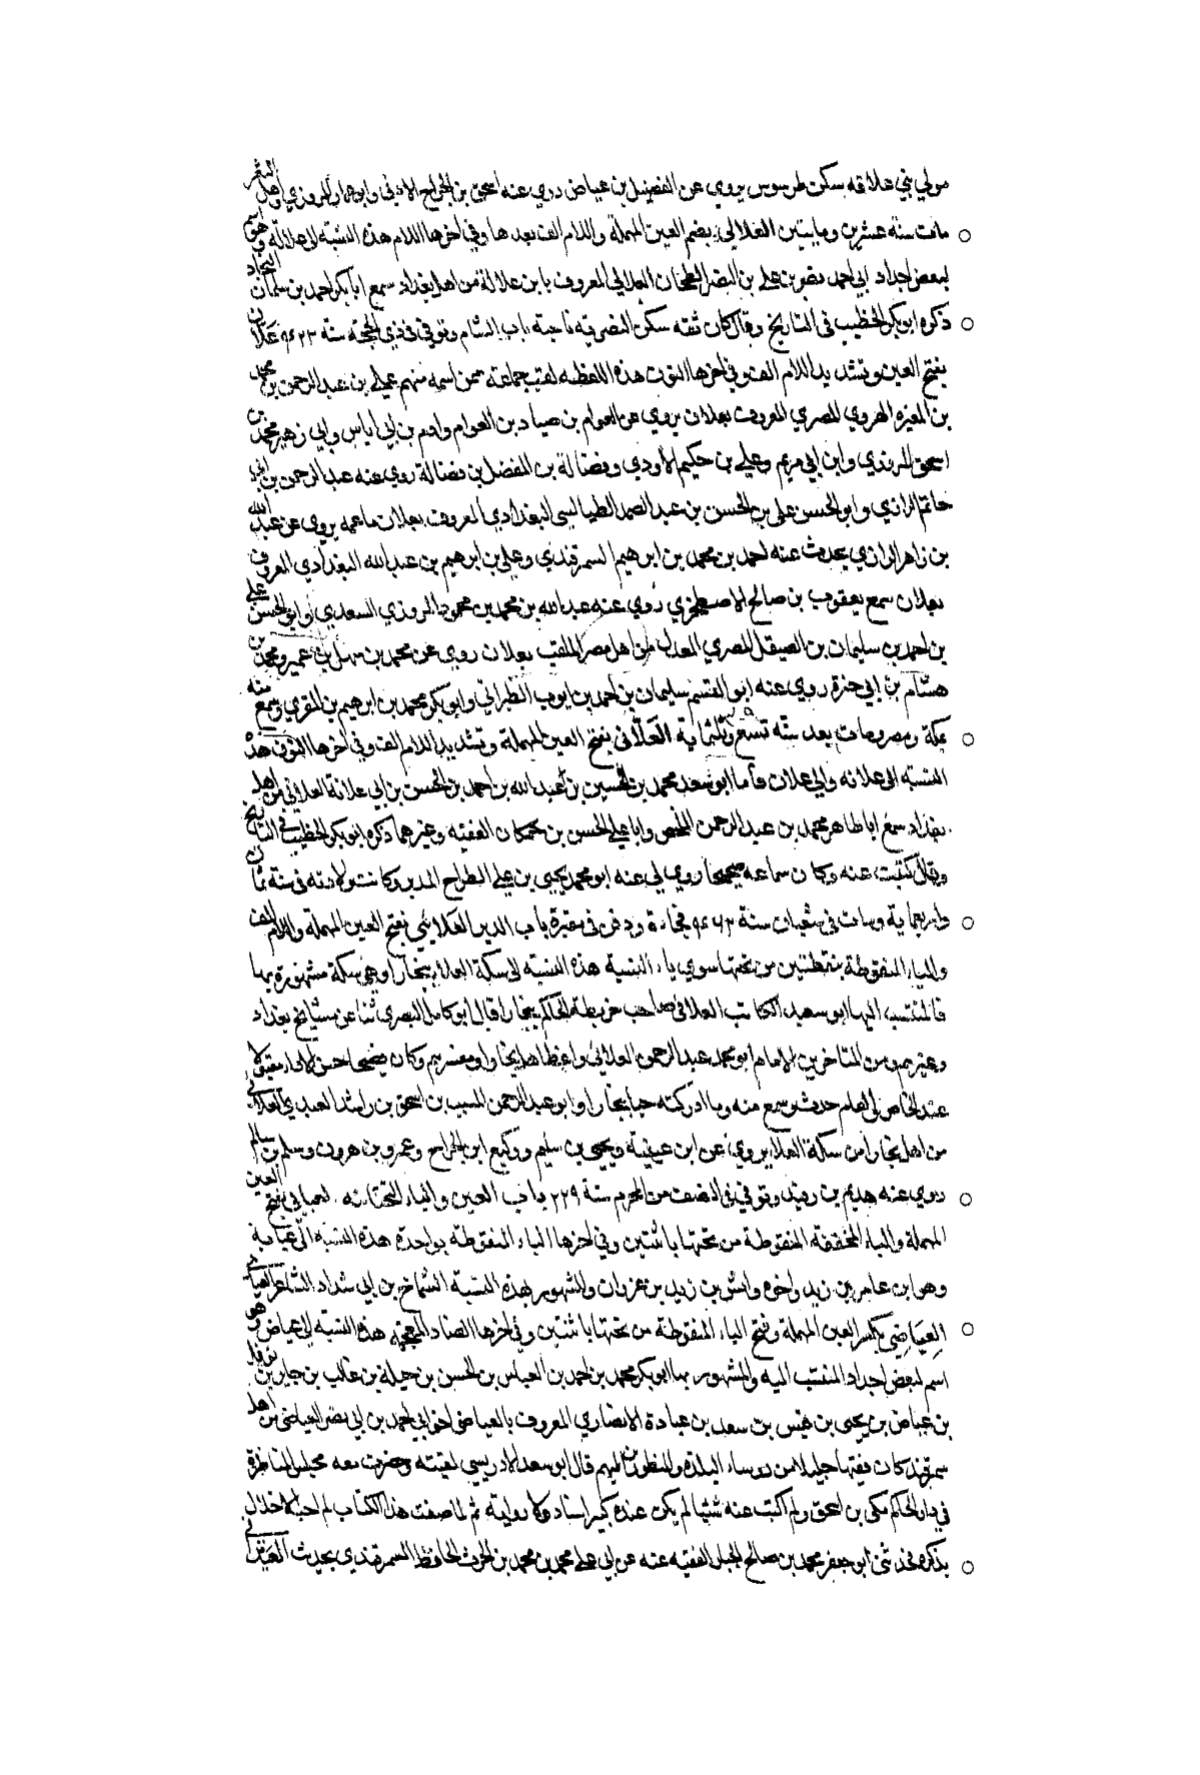 مولي بني علاقه سكن طرسوس يروي عن الفضيل بن عياض روي عنه اسحق بن الجراح الاذني وابو عمار المروزي واهل الثغر
مات سنة عشرين ومايتين العلالي بضم العين المهملة واللام الف بعدها وفي اخرها اللام هذه النسبة الى علالة وهو اسم
لبعض اجداد ابي احمد نصر بن علي بن النضر الطحان العلالي المعروف بابن علالة من اهل بغداد سمع ابا بكر احمد بن سلمان النجاد
ذكره ابو بكر الخطيب في التاريخ وقال كان ثقه سكن النصريه ناحية باب الشام وتوفي في ذي الحجة سنة علان
بفتح العين وتشديد اللام الف وفي اخرها النون هذه اللفظه لقب جماعة ممن اسمه منهم علي بن عبد الرحمن بن محمد
بن المغيره المصري المعروف بعلان يروي عن العوام بن عباد بن العوام وادم بن ابي اياس وابي زهير محمد بن
اسحق المروزي وابن ابي مريم وعلي بن حكيم الاودي وفضالة بن المفضل بن فضالة روي عنه عبد الرحمن بن ابي
حاتم الرازي وابو الحسن علي بن الحسن بن عبد الصمد الطيالسي البغدادي المعروف بعلان ماغمه يروي عن عبد الله
بن زاهر الرازي يحدث عنه احمد بن محمد بن ابرهيم السمرقندي وعلي بن ابرهيم بن عبد الله البغدادي المعروف
بعلان سمع يعقوب بن صالح الاصطخري روي عنه عبد الله بن محمد بن محمود المروزي السعدي وابو الحسن علي
بن احمد بن سليمان بن الصيقل المصري المعدل من اهل مصر الملقب بعلان روي عن محمد بن عمير ومحمد بن
هشام بن ابي روي عنه ابو القسم سليمان بن احمد بن ايوب الطبراني وابو بكر محمد بن ابرهيم بن المقري وسمع منه
بمكة ومصر ومات بعد سنه تسع وثلثماية العلاني بفتح العين المهملة وتشديد اللام الف وفي اخرها النون هذه
النسبه الى علانه والى علان فاما ابو سعد محمد بن الحسين بن عبد الله بن احمد بن الحسن بن ابي علانة العلاني من اهل
بغداد سمع ابا طاهر محمد بن عبد الرحمن المخلص وابا علي الحسن بن حمكان الفقيه وغيرهما ذكره ابو بكر الخطيب في التاريخ
وقال كتبت عنه وكان سماعه صحيحا روي لي عنه ابو محمد يحيى بن علي الطراح المدير وكانت ولادته في سنة ثمان
واربعماية ومات في شعبان سنة فجاءة ودفن في مقبرة باب الدير العلائي بفتح العين المهملة واللام الف
والياء المنقوطة بنقطتين من تحتها سوي ياء النسبة هذه النسبة الى سكة العلاء ببخارا وهي سكة مشهورة بها
فالمنتسب اليها ابو سعيد الكاتب العلائي صاحب خريطة الحاكم ببخارا قال ابو كامل البصري ثنا عن مشايخ بغداد
وغيرهم ومن المتاخرين الامام ابو محمد عبد الرحمن العلائي واعظ اهل بخارا ومفسرهم وكان فصيحا حسن الاداء مقبولا
عند الخاص والعام حدث وسمع منه وما ادركته حيا ببخارا وابو عبد الرحمن المسيب بن اسحق بن راشد العبدي العلائي
من اهل بخارا من سكة العلا يروي عن ابن عيينه ويحيى بن سليم ووكيع ابن الجراح وعمر بن هرون وسلم بن سالم
روي عنه هديم بن وتوفي في النصف من المحرم سنة ٢٢٩ باب العين والياء التحتانيه العيابي بفتح العين
المهملة والياء المخففة المنقوطة من تحتها باثنتين وفي اخرها الباء المنقوطة بواحدة هذه النسبه الى عيابة
وهو ابن عامر بن زيد واخوه بن زيد بن عزوان والمشهور بهذه النسبة الشماخ بن ابي شداد الشاعر العيابي
العياضي بكسر العين المهملة وفتح الياء المنقوطة من تحتها باثنتين وفي اخرها الضاد المعجمة هذه النسبه الى عياض وهو
اسم لبعض اجداد المنتسب اليه والمشهور بها ابو بكر محمد بن احمد بن العباس بن الحسن بن جبلة بن غالب بن جابر بن نوفل
بن عياض بن يحيى بن قيس بن سعد بن عبادة الانصاري المعروف بالعياضي اخو ابي احمد بن ابي نصر العياضي من اهل
سمرقند كان فقيها جليلا من روساء البلدة والمنظورين اليهم قال ابو سعد الادريسي لقيته وحضرت معه مجلس المناظرة
في دار الحاكم مكي بن اسحق ولم اكتب عنه شيئا لم يكن عنده كبير اسناد ولا رواية ثم لما صنفت هذا الكتاب لم احب الاخلال
بذكره فحدثني ابو جعفر محمد بن صالح الجبلي الفقيه عنه عن ابي علي محمد بن محمد بن الحرث الحافظ السمرقندي بحديث